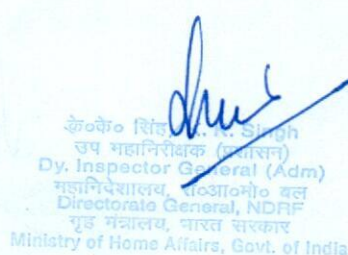 के०के० सिंह K. K. Singh
उप महानिरीक्षक (प्रशासन)
Dy. Inspector General (Adm)
महानिदेशालय, रा०आ०मो० बल
Directorate General, NDRF
गृह मंत्रालय, भारत सरकार
Ministry of Home Affairs, Govt. of India